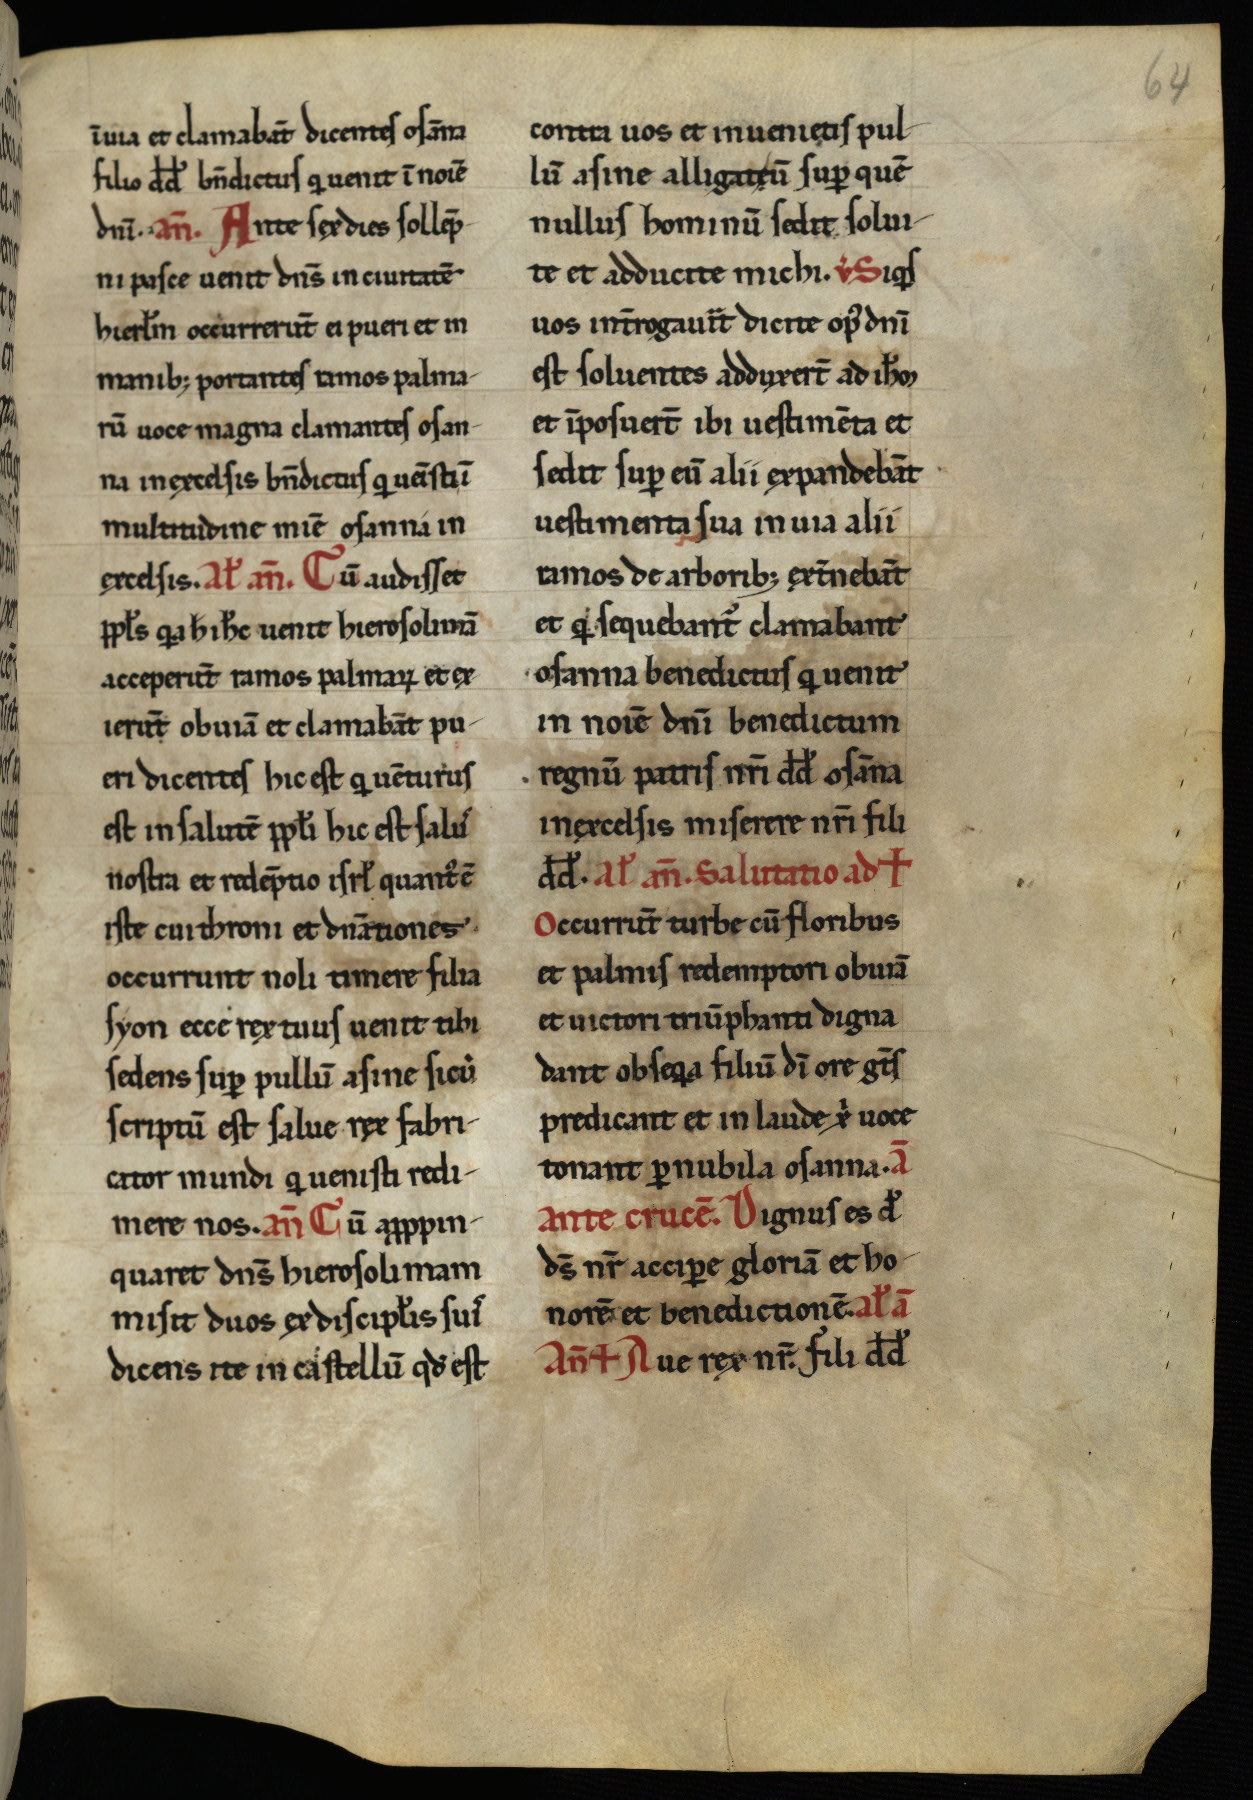 64
īuia et clamabāt dicentes osāna
filio dd̄ bn̄dictus q uenit ī noīe
dnī. an̄. Ante sex dies sollēp
ni pasce uenit dn̄s in ciuitatē
hierłm occurrerūt ei pueri et in
manib; portantes ramos palma-
rū uoce magna clamantes osan-
na in excelsis bn̄dictus q uēisti ī
multitudine mīe osanna in
excelsis. Al̄ an̄. Cū audisset
ppl̄s qa ihc uenit hierosolimā
acceperūt ramos palmaꝝ et ex
ierūt obuiā et clamabāt pu-
eri dicentes hic est q uēturus
est in salutē ppl̄i hic est salus
nostra et redēptio isrl̄ quantꝰ ē
iste cui throni et dnātiones
occurrunt noli timere filia
syon ecce rex tuus uenit tibi
sedens suꝑ pullū asine sicut
scriptū est salue rex fabri-
cator mundi q uenisti redi-
mere nos. an̄ Cū appropin-
quaret dn̄s hierosolimam
misit duos ex discipl̄is suis
dicens ite in castellū qd̄ est
contra uos et inuenietis pul-
lū asine alligatū suꝑ quē
nullus hominū sedit solui-
te et adducite michi. v̄ Si qs
uos int̄rogauīt dicite opꝰ dnī
est soluentes adduxert̄ ad ih̄m
et īposuert̄ ibi uestimēta et
sedit suꝑ eū alii expandebāt
uestimenta sua in uia alii
ramos de arborib; ext̄nebāt
et q sequebant̄ clamabant
osanna benedictus q uenit
in noīe dnī benedictum
regnū patris nrī dd̄ osāna
in excelsis miserere nrī fili
dd̄. al̄ an̄. Salutatio ad ✝
Occurrūt turbe cū floribus
et palmis redemptori obuiā
et uictori triūphanti digna
dant obseqa filiū dī ore gt̄s
predicant et in laude xp̄i uoce
tonant ꝑ nubila osanna. ā
ante crucē. Dignus es d̄
ds̄ nr̄ accipe gloriā et ho-
norē et benedictionē. al̄ ā
An̄ ✝ Aue rex nr̄. fili dd̄